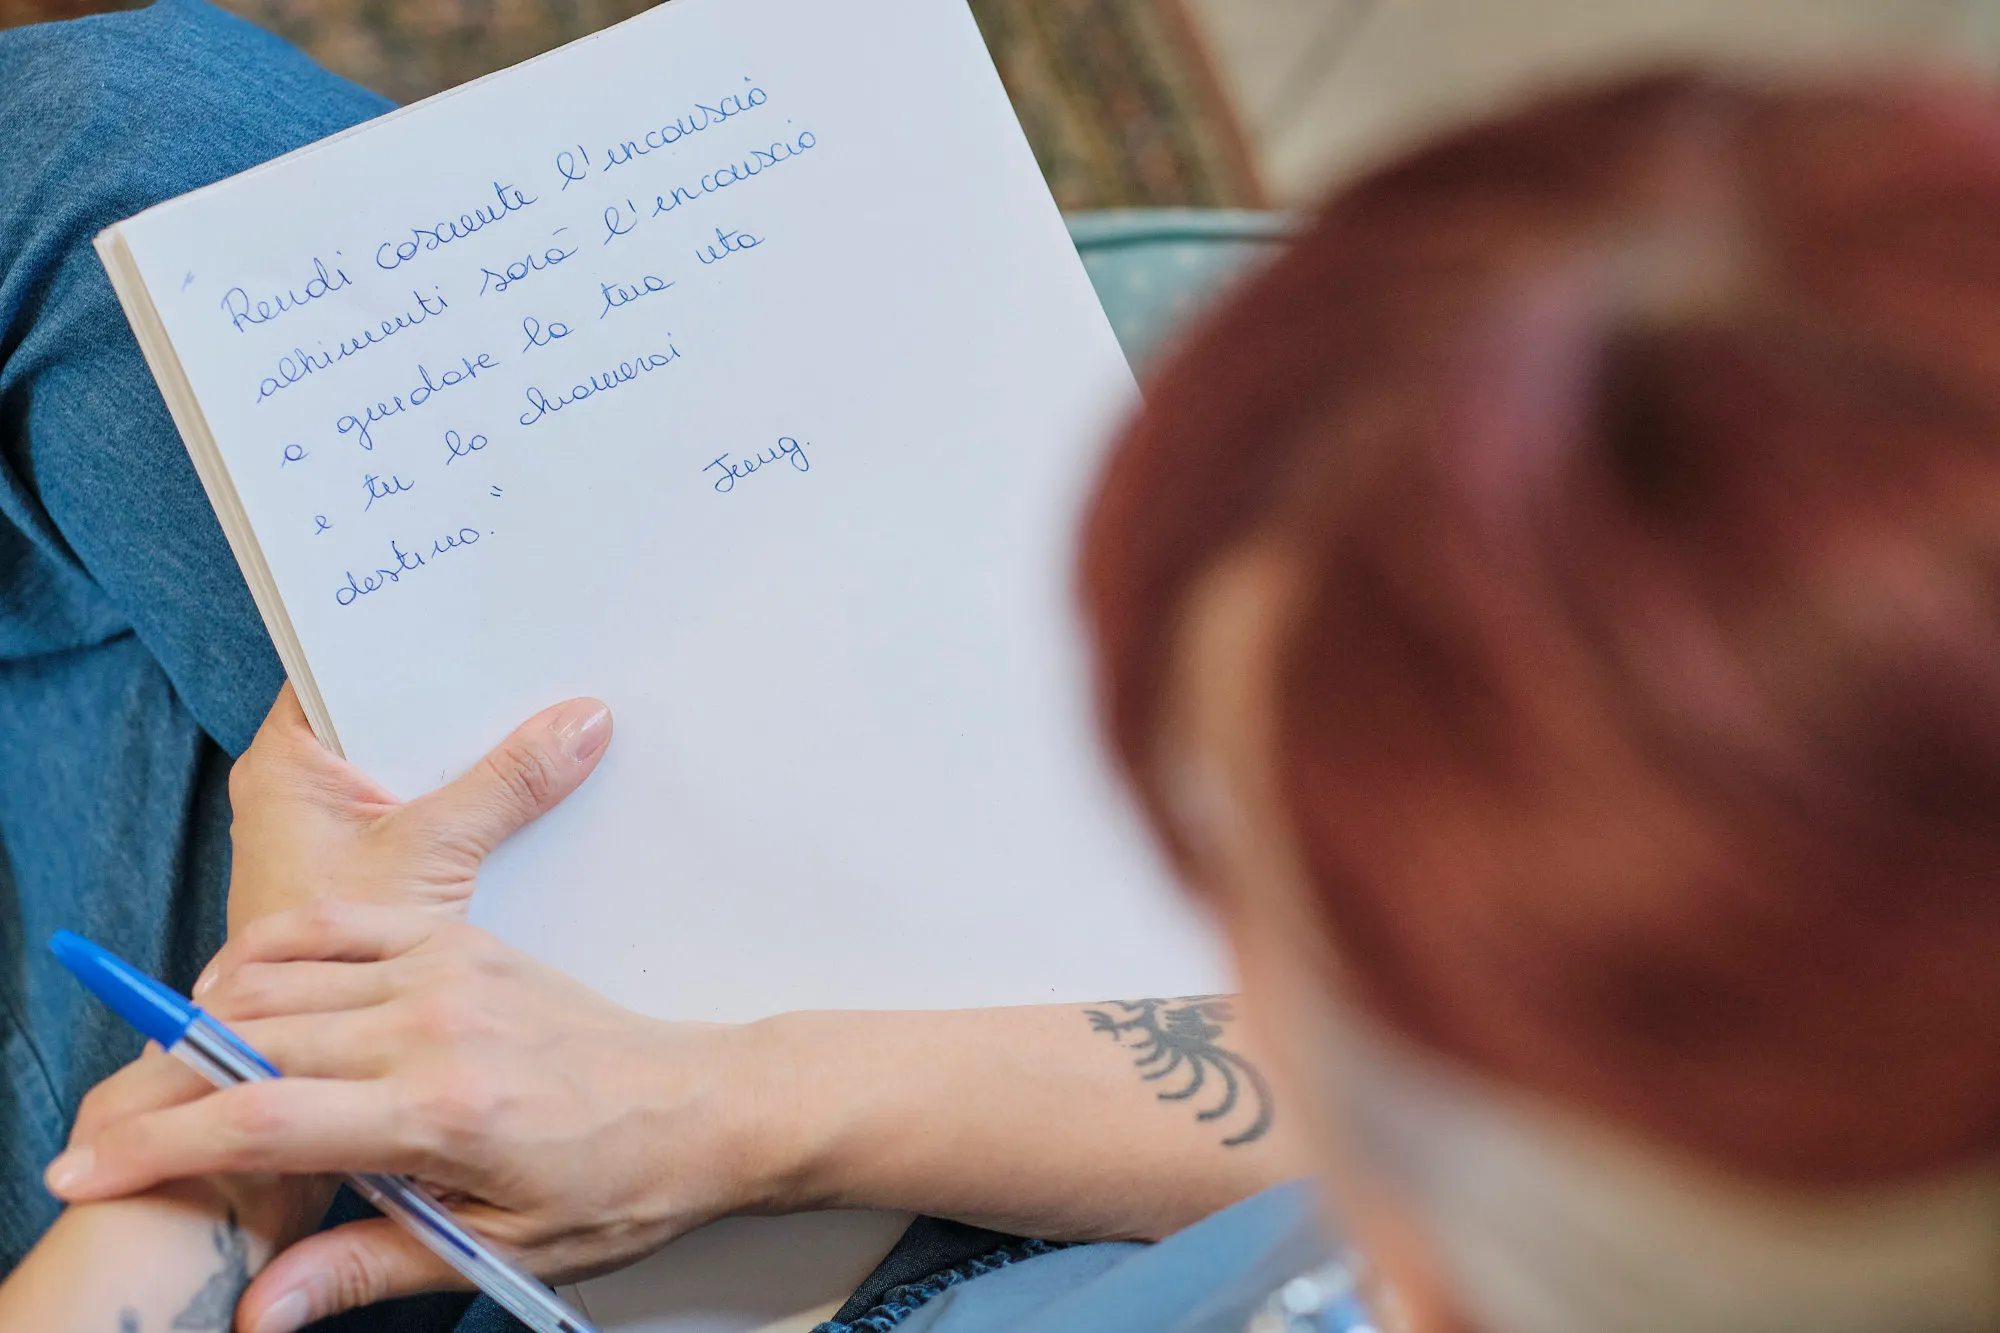 "Rendi cosciente l'inconscio
altrimenti sarà l'inconscio
a guidare la tua vita
e tu lo chiamerai
destino."
Jung.